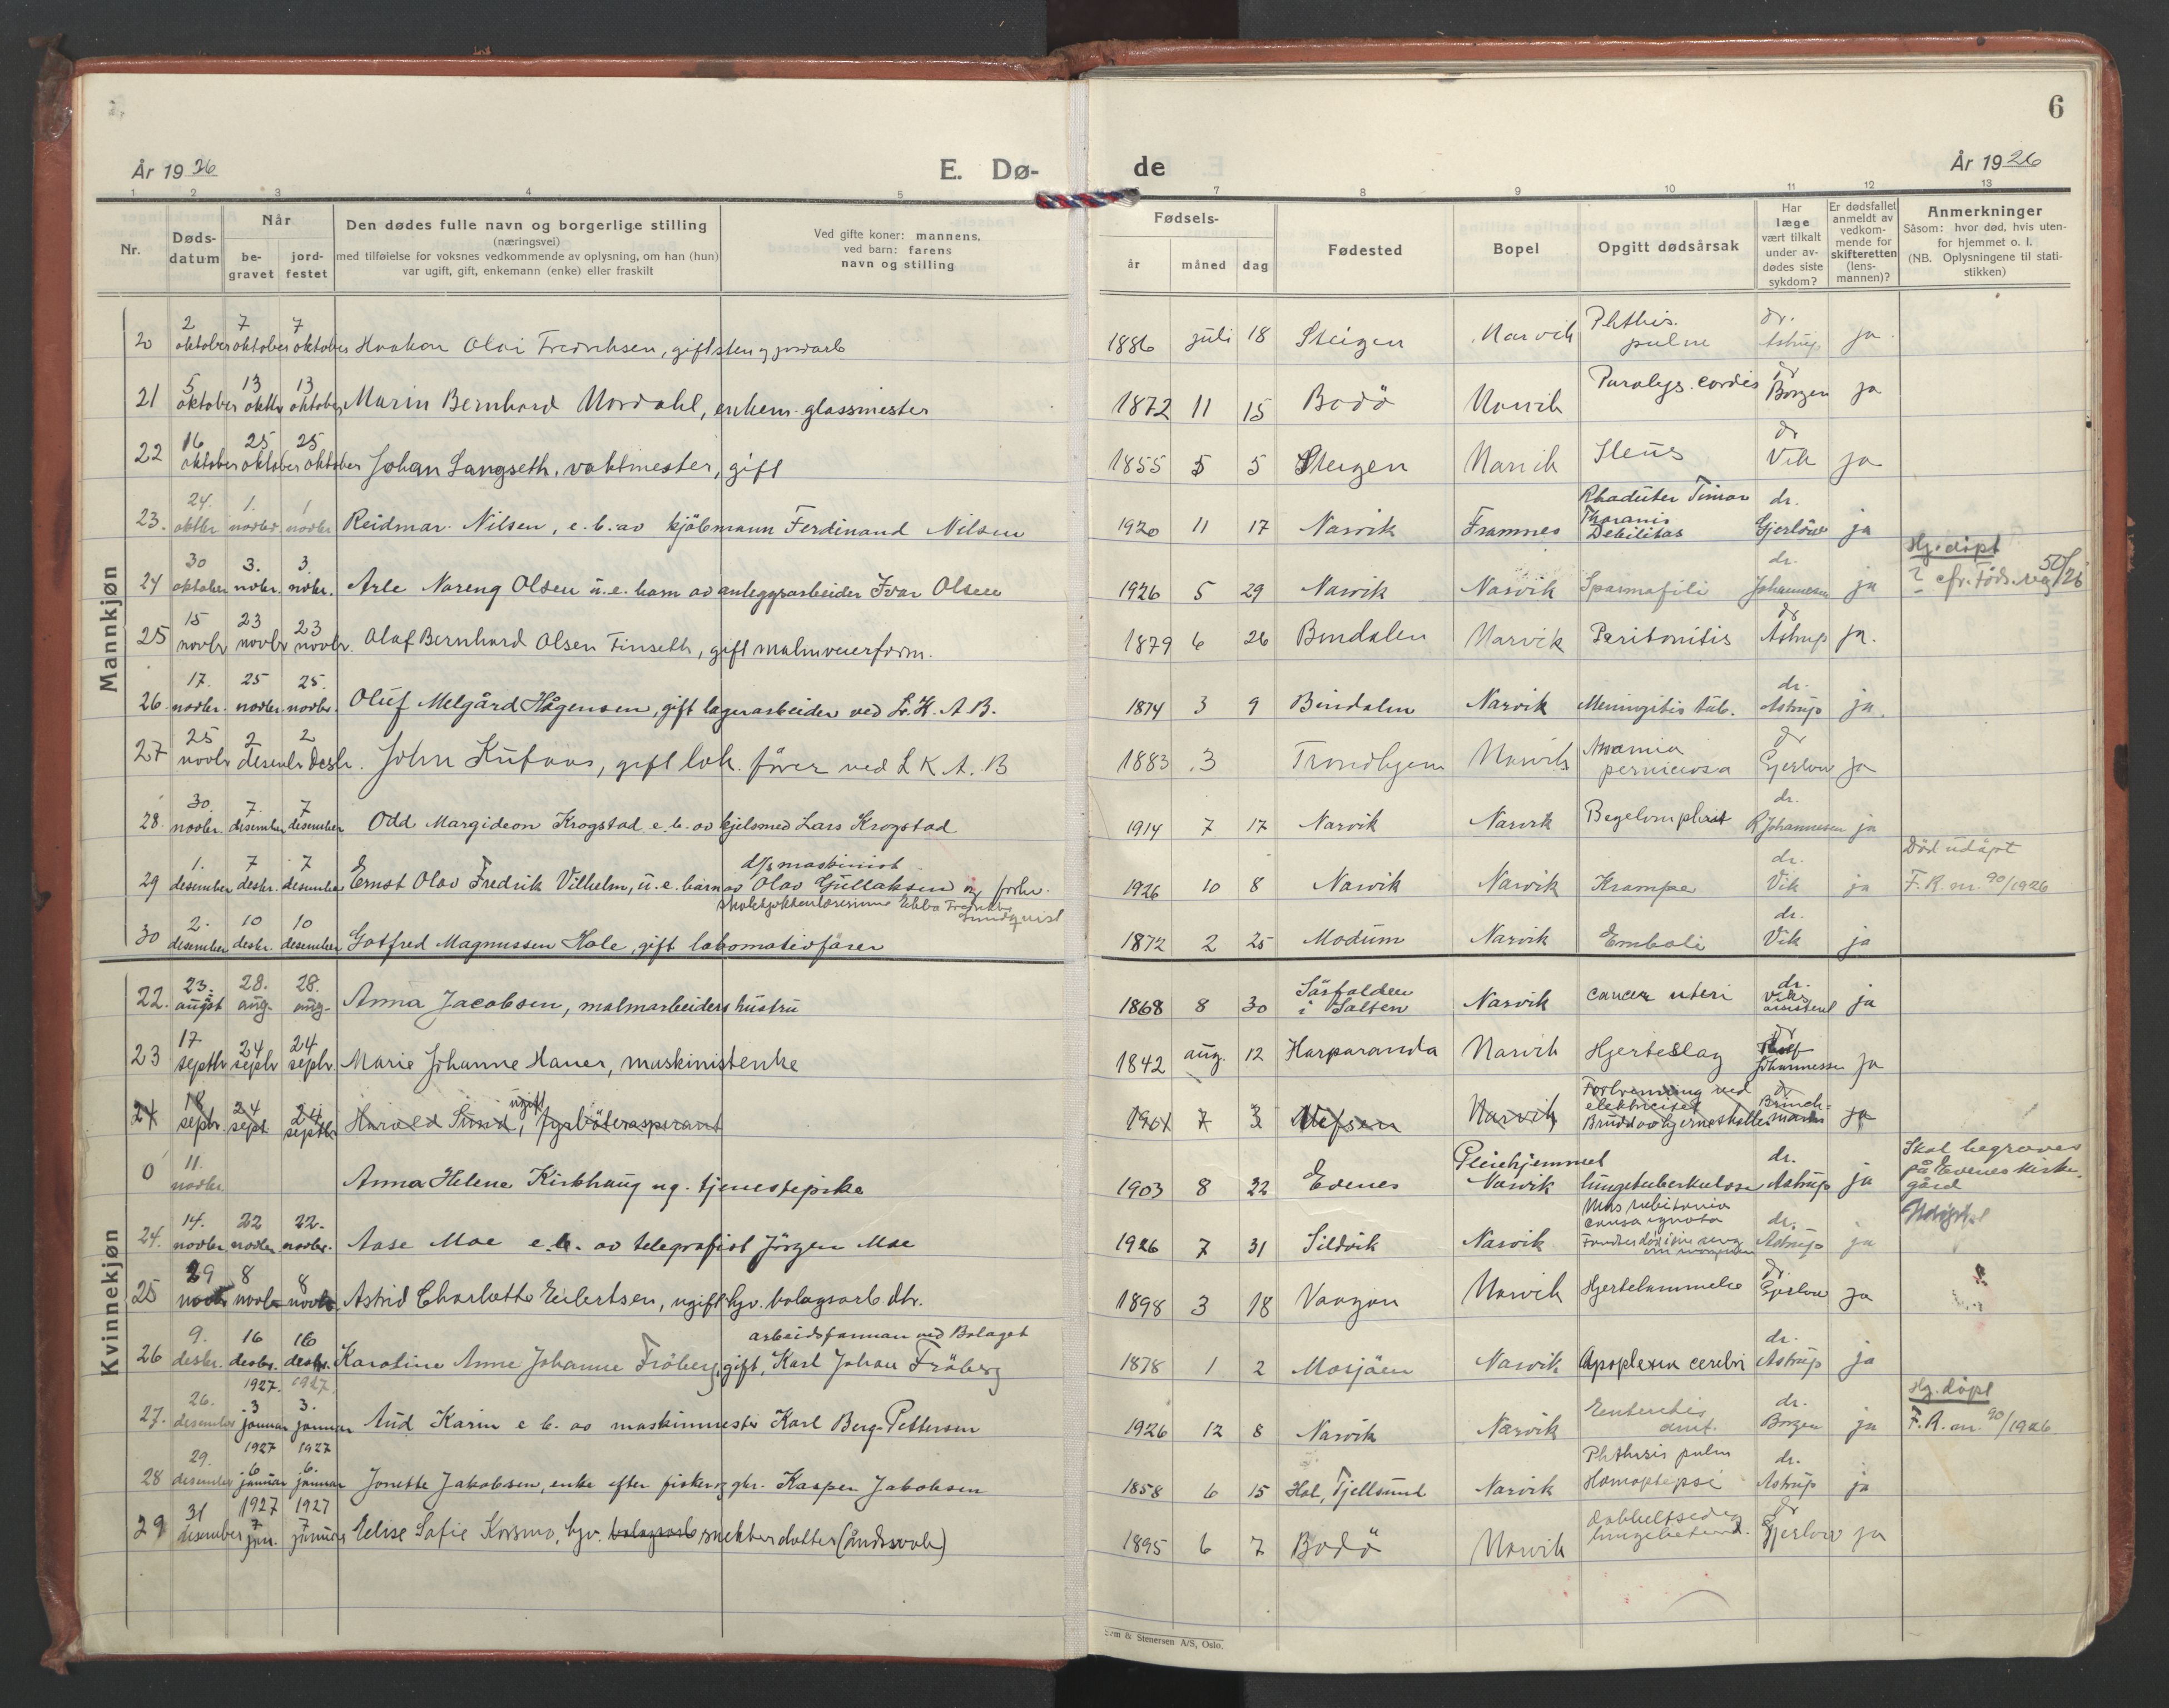 6
År 1926 E. Dø- de År 1926
1 2 3 4 5 7 8 9 10 11 12 13
Nr. Døds-datum Når be-gravet jord-festet
Den dødes fulle navn og borgerlige stilling
(næringsvei)
med tilføielse for voksnes vedkommende av oplysning, om han (hun)
var ugift, gift, enkemann (enke) eller fraskilt
Ved gifte koner: mannens,
ved barn: farens
navn og stilling
Fødsels- år måned dag
Fødested
Bopel
Opgitt dødsårsak
Har læge vært tilkalt under av-dødes siste sykdom?
Er dødsfallet anmeldt av vedkom-mende for skifteretten (lens-mannen)?
Anmerkninger
Såsom: hvor død, hvis uten-
for hjemmet o. l.
(NB. Oplysningene til stati-
stikken)
Mannkjøn
20 2 oktober 7 oktober 7 oktober Haakon Olai Fredriksen, gift sten og jordarb 1886 juli 18 Steigen Narvik Phthis. pulm dr. Astrup ja
21 5 oktober 13 oktbr 13 oktober Marin Bernhard Nordahl, enkem. glassmester 1872 11 15 Bodö Narvik Paralys. cordis dr Borgen ja
22 16 oktober 25 oktober 25 oktober Johan Langseth, vaktmester, gift 1855 5 5 Steigen Narvik Ileus dr Vik ja
23. 24. oktbr 1. novbr 1 novbr Reidmar Nilsen, e. b. av kjöbmann Ferdinand Nilsen 1920 11 17 Narvik Framnes Debilitas dr. Gjerlöw ja
24 30 oktober 3. novbr. 3. novbr. Arle Nareng Olsen u. e. barn av anleggsarbeider Ivar Olsen 1926 5 29 Narvik Narvik Spasmofili dr. Johannesen ja Hj. döpt ? cfr. Föds. reg 50/26
25 15 novbr 23 novbr 23 novbr. Olaf Bernhard Olsen Finseth, gift malmveierform. 1879 6 26 Bindalen Narvik Peritonitis dr Astrup ja.
26 17. novbr. 25 novbr. 25. novbr. Oluf Melgård Hågensen, gift lagerarbeider ved L. K. A. B. 1874 3 9 Bindalen Narvik Meningitis tub. dr. Astrup ja.
27 25 novbr 2 desembr 2 desbr. John Kufaas, gift lok. fører ved L K A. B 1883 3 Trondhjem Narvik Anæmia perniciosa dr Gjerlow ja
28. 30. novbr. 7. desember 7 desember Odd Margideon Krogstad e. b. av kjelsmed Lars Krogstad 1914 7 17 Narvik Narvik dr. R Johannesen ja
29 1. desember 7 desbr. 7 desember Ernst Olav Fredrik Vilhelm, u. e. barn av d/s maskinist Olav Gullaksen og forhv.
skolekjökkenlærerinne Ebba Fredrikke Lundquist 1926 10 8 Narvik Narvik Krampe dr. Vik ja Död udöpt F. R. nr. 90/1926
30 2. desember 10 desbr. 10 desember Gotfred Magnussen Hole, gift lokomotivfører 1872 2 25 Modum Narvik Emboli dr. Vik ja
Kvinnekjøn
22. 23. augst 28. aug. 28. aug. Anna Jacobsen, malmarbeiders hustru 1868 8 30 Sörfolden i Salten Narvik cancer uteri dr. Viks assistent ja
23 17. septbr 24 septbr 24 septbr. Marie Johanne Haner, maskinistenke 1842 aug. 12 Harparanda Narvik Hjerteslag dr Rolf Johannessen ja
24 18 septbr. 24 sept. 24 septbr Harald Sund, ugift, fyrböteraspirant 1904 7 3 Vefsen Narvik Forbrenning ved elektricitet Brudd av hjerneskallen dr Brinch- ja
0 11. novbr. Anna Helene Kirkhaug ug. tjenestepike 1903 8 22 Evenes Pleiehjemmet Narvik lungetuberkulose dr. Astrup ja Skal begraves på Evenes kirkegård
24. 14. novbr. 22 novbr. 22. novbr. Aase Moe e. b. av telegrafist Jörgen Moe 1926 7 31 Sildvik Narvik Mors subitanea causa ignota Fundet död i sin seng om morgenen dr. Astrup ja Udöpt
25 29 novbr 8 novbr 8 novbr. Astrid Charlotte Eilertsen, ugift hjv. bolagsarb dtr. 1898 3 18 Vaagan Narvik Hjertelammelse dr. Gjerlow ja
26 9. desbr. 16 desbr. 16 desbr. Karoline Anne Johanne Fröberg, gift, arbeidsforman ved Bolaget Karl Johan Fröberg 1878 1 2 Mosjöen Narvik Apoplexia cerebri dr. Astrup ja
27. 26. desember 1927. 3 januar 1927. 3. januar Aud Karin e b. av maskinmester Karl Berg-Pettersen 1926 12 8 Narvik Narvik Enteritis acut. dr. Borgen ja Hj. döpt F. R. nr. 90/1926
28 29. desember 1927 6. januar 1927 6. januar Jonette Jakobsen, enke efter fisker og gbr. Kasper Jakobsen 1858 6 15 Hol, Tjellsund Narvik Phthisis pulm Hæmoptepsi dr. Astrup ja
29 31 desember 1927 7 jan. 1927 7 januar Elise Sofie Korsmo, hjv. bolagsarb snekkerdatter (åndssvak) 1895 6 7 Bodö Narvik Dobbeltsidig lungebetend. dr Gjerlow ja
& Stenersen A/S, Oslo.